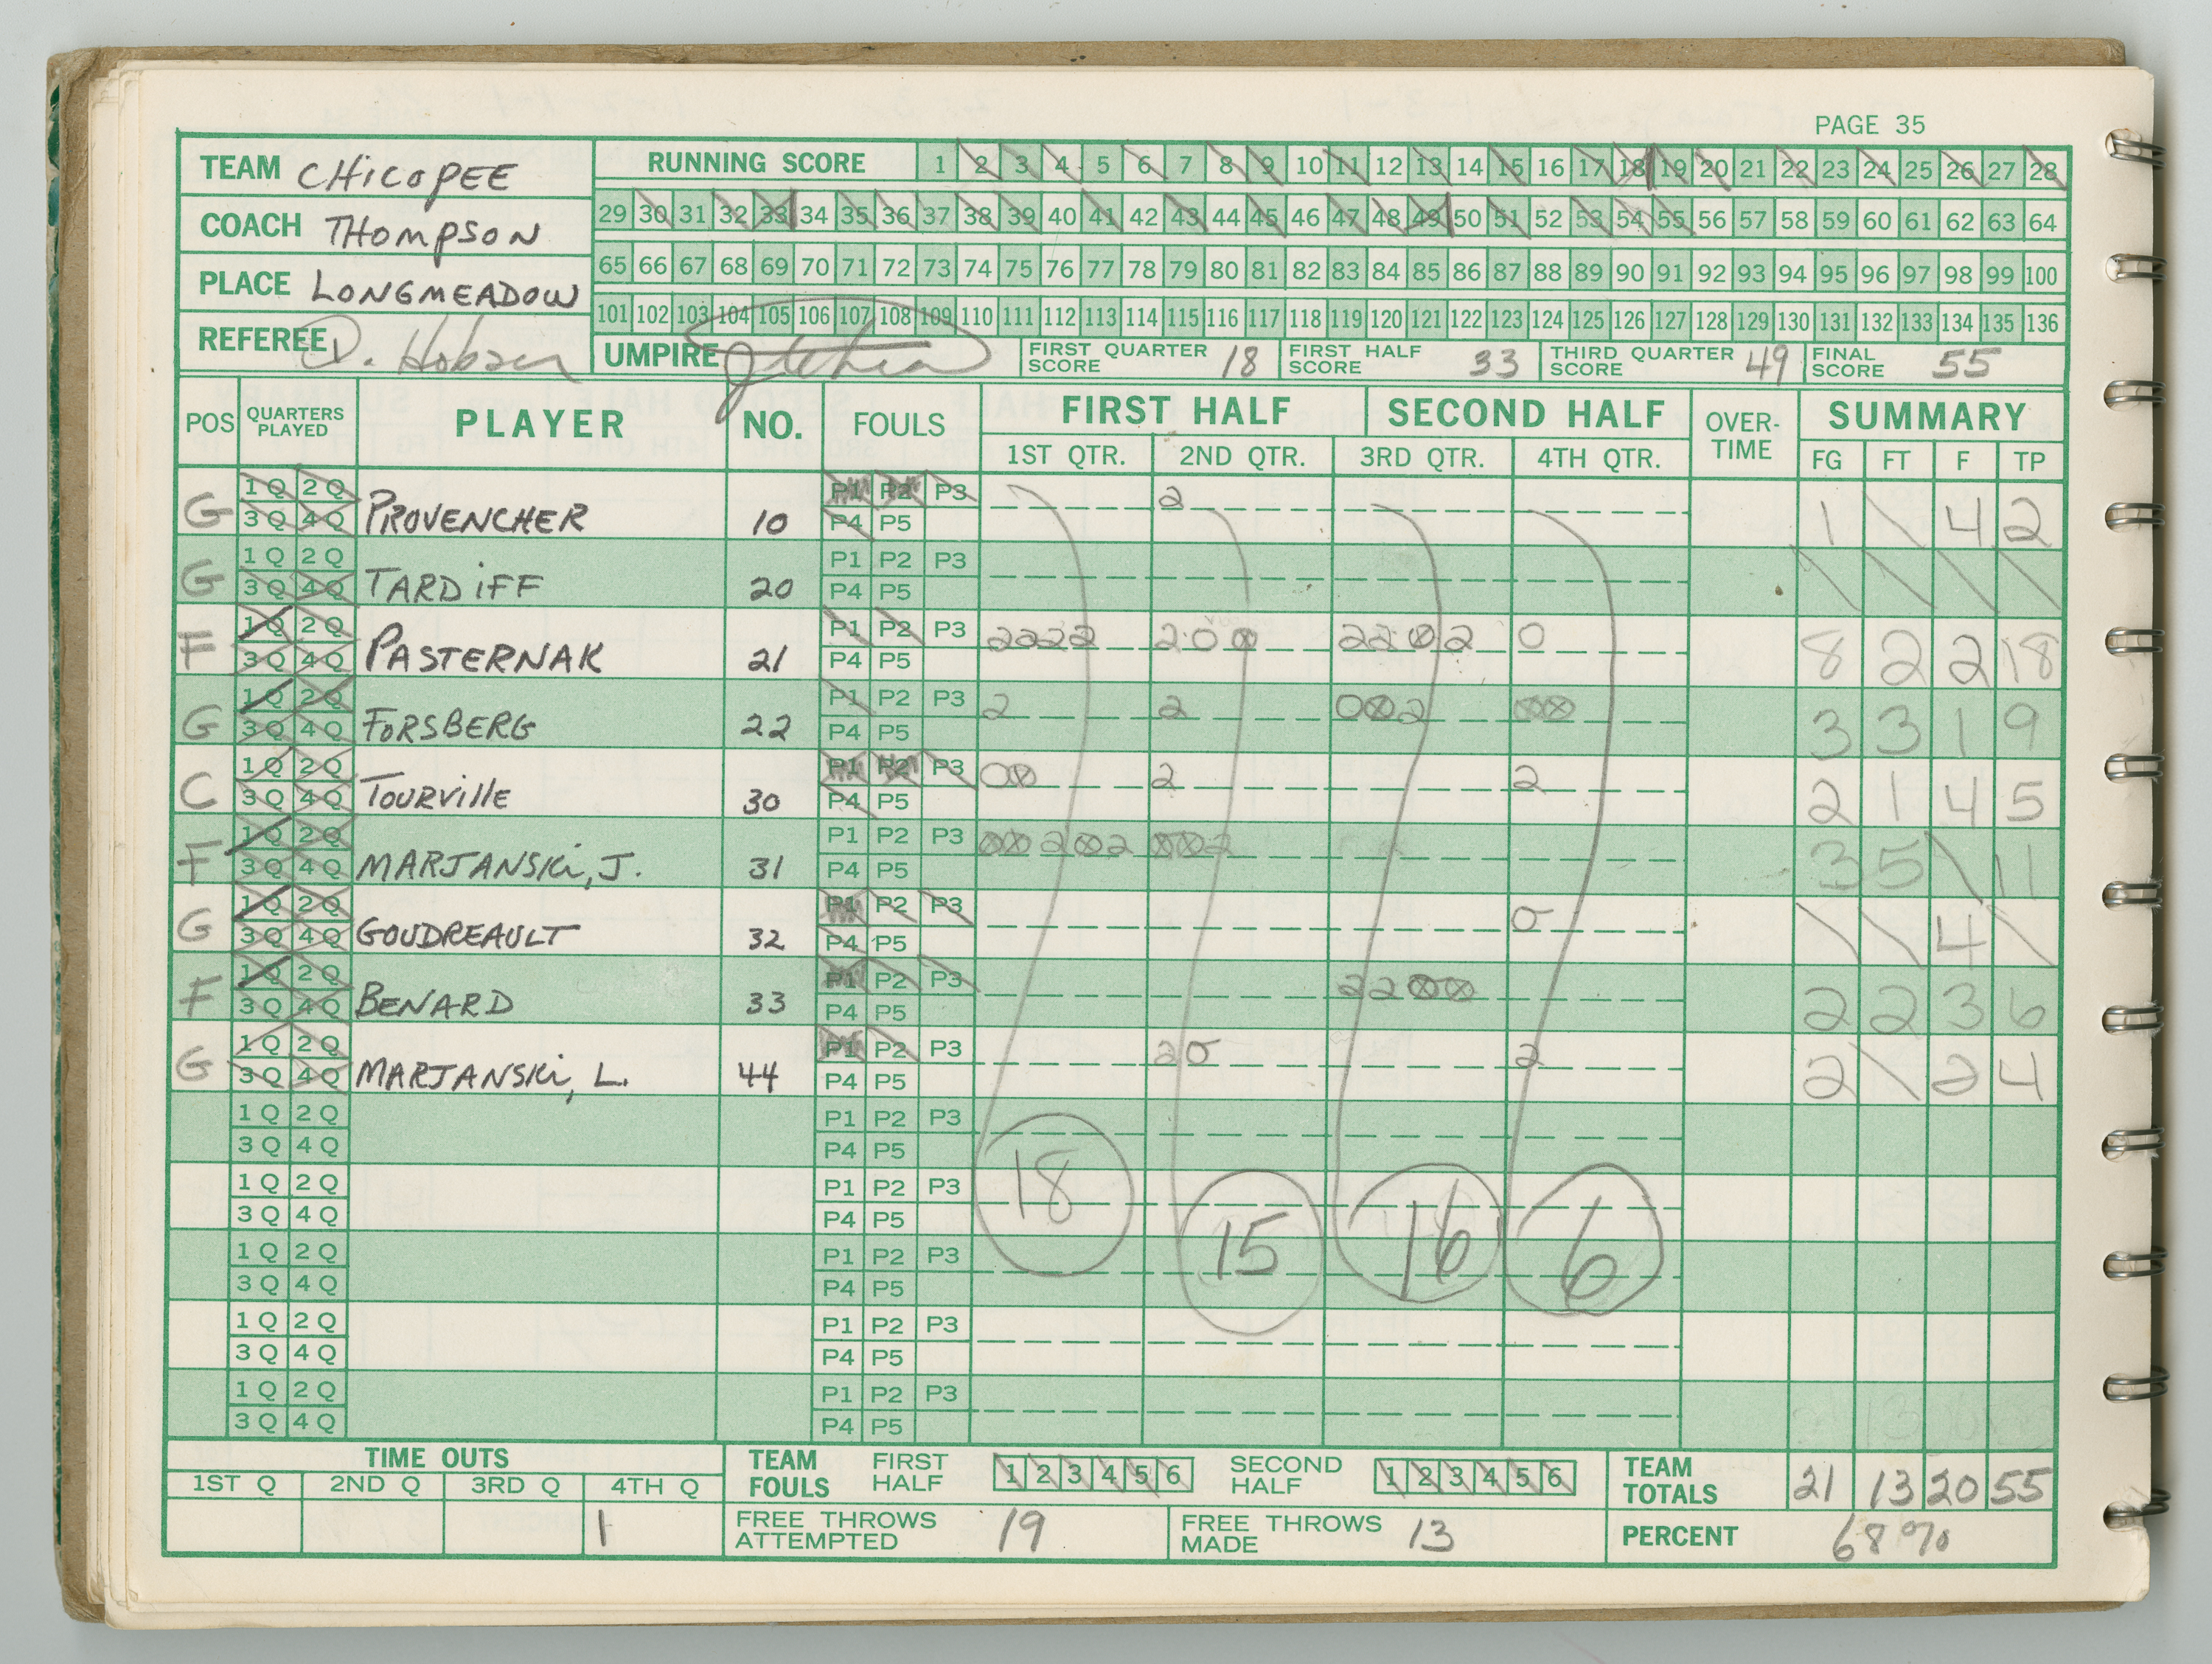 PAGE 35
TEAM CHICOPEE
COACH THOMPSON
PLACE LONGMEADOW
REFEREE D. Hobson
RUNNING SCORE 1 2 3 4 5 6 7 8 9 10 11 12 13 14 15 16 17 18 19 20 21 22 23 24 25 26 27 28
29 30 31 32 33 34 35 36 37 38 39 40 41 42 43 44 45 46 47 48 49 50 51 52 53 54 55 56 57 58 59 60 61 62 63 64
65 66 67 68 69 70 71 72 73 74 75 76 77 78 79 80 81 82 83 84 85 86 87 88 89 90 91 92 93 94 95 96 97 98 99 100
101 102 103 104 105 106 107 108 109 110 111 112 113 114 115 116 117 118 119 120 121 122 123 124 125 126 127 128 129 130 131 132 133 134 135 136
UMPIRE FIRST QUARTER SCORE 18 FIRST HALF SCORE 33 THIRD QUARTER SCORE 49 FINAL SCORE 55
POS QUARTERS PLAYED PLAYER NO. FOULS FIRST HALF SECOND HALF OVER-TIME SUMMARY
1ST QTR. 2ND QTR. 3RD QTR. 4TH QTR. FG FT F TP
G 1Q 2Q PROVENCHER 10 P1 P2 P3 2 1 \ 4 2
3Q 4Q P4 P5
G 1Q 2Q TARDIFF 20 P1 P2 P3 \ \ \ \
3Q 4Q P4 P5
F 1Q 2Q PASTERNAK 21 P1 P2 P3 2222 20⊗ 22⊗2 0 8 2 2 18
3Q 4Q P4 P5
G 1Q 2Q FORSBERG 22 P1 P2 P3 2 2 0⊗2 ⊗⊗ 3 3 1 9
3Q 4Q P4 P5
C 1Q 2Q TOURVILLE 30 P1 P2 P3 0⊗ 2 2 2 1 4 5
3Q 4Q P4 P5
F 1Q 2Q MARJANSKI, J. 31 P1 P2 P3 ⊗⊗2⊗2 ⊗⊗2 3 5 \ 11
3Q 4Q P4 P5
G 1Q 2Q GOUDREAULT 32 P1 P2 P3 0 \ \ 4 \
3Q 4Q P4 P5
F 1Q 2Q BENARD 33 P1 P2 P3 22⊗⊗ 2 2 3 6
3Q 4Q P4 P5
G 1Q 2Q MARJANSKI, L. 44 P1 P2 P3 20 2 2 \ 2 4
3Q 4Q P4 P5
1Q 2Q P1 P2 P3
3Q 4Q P4 P5
1Q 2Q P1 P2 P3
3Q 4Q P4 P5
18 15 16 6
1Q 2Q P1 P2 P3
3Q 4Q P4 P5
1Q 2Q P1 P2 P3
3Q 4Q P4 P5
1Q 2Q P1 P2 P3
3Q 4Q P4 P5
TIME OUTS
1ST Q 2ND Q 3RD Q 4TH Q
1
TEAM FOULS FIRST HALF 1 2 3 4 5 6 SECOND HALF 1 2 3 4 5 6
TEAM TOTALS 21 13 20 55
FREE THROWS ATTEMPTED 19 FREE THROWS MADE 13 PERCENT 68%